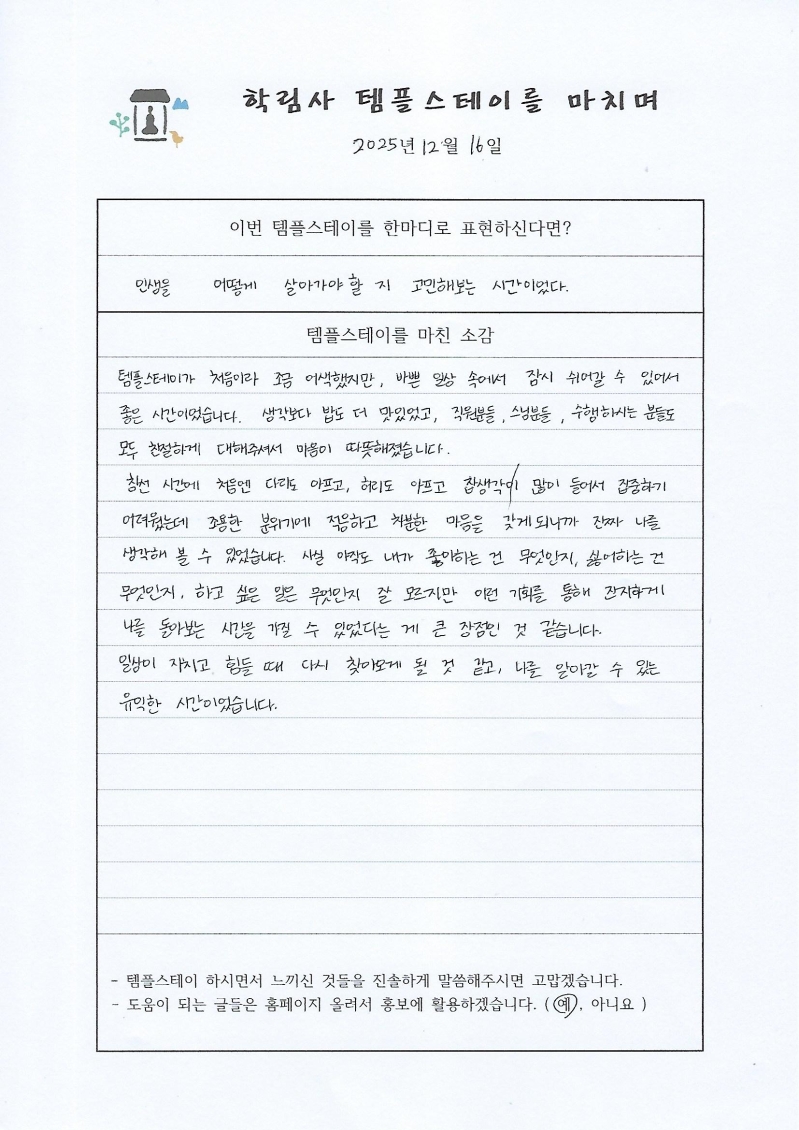 학림사 템플스테이를 마치며
2025년 12월 16일
이번 템플스테이를 한마디로 표현하신다면?
인생을 어떻게 살아가야 할 지 고민해보는 시간이었다.
템플스테이를 마친 소감
템플스테이가 처음이라 조금 어색했지만, 바쁜 일상 속에서 잠시 쉬어갈 수 있어서
좋은 시간이었습니다. 생각보다 밥도 더 맛있었고, 직원분들, 스님분들, 수행하시는 분들도
모두 친절하게 대해주셔서 마음이 따뜻해졌습니다.
참선 시간에 처음엔 다리도 아프고, 허리도 아프고 잡생각이 많이 들어서 집중하기
어려웠는데 조용한 분위기에 적응하고 차분한 마음을 갖게되니까 진짜 나를
생각해 볼 수 있었습니다. 사실 아직도 내가 좋아하는 건 무엇인지, 싫어하는 건
무엇인지, 하고 싶은 일은 무엇인지 잘 모르지만 이런 기회를 통해 진지하게
나를 돌아보는 시간을 가질 수 있었다는 게 큰 장점인 것 같습니다.
일상이 지치고 힘들 때 다시 찾아오게 될 것 같고, 나를 알아갈 수 있는
유익한 시간이었습니다.
- 템플스테이 하시면서 느끼신 것들을 진솔하게 말씀해주시면 고맙겠습니다.
- 도움이 되는 글들은 홈페이지 올려서 홍보에 활용하겠습니다. ( 예, 아니요 )